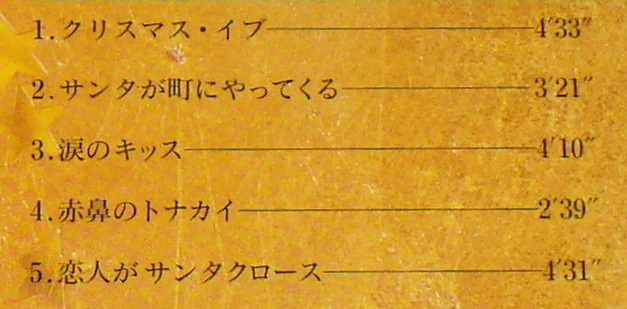 1.クリスマス・イブ 4′33″
2.サンタが町にやってくる 3′21″
3.涙のキッス 4′10″
4.赤鼻のトナカイ 2′39″
5.恋人がサンタクロース 4′31″